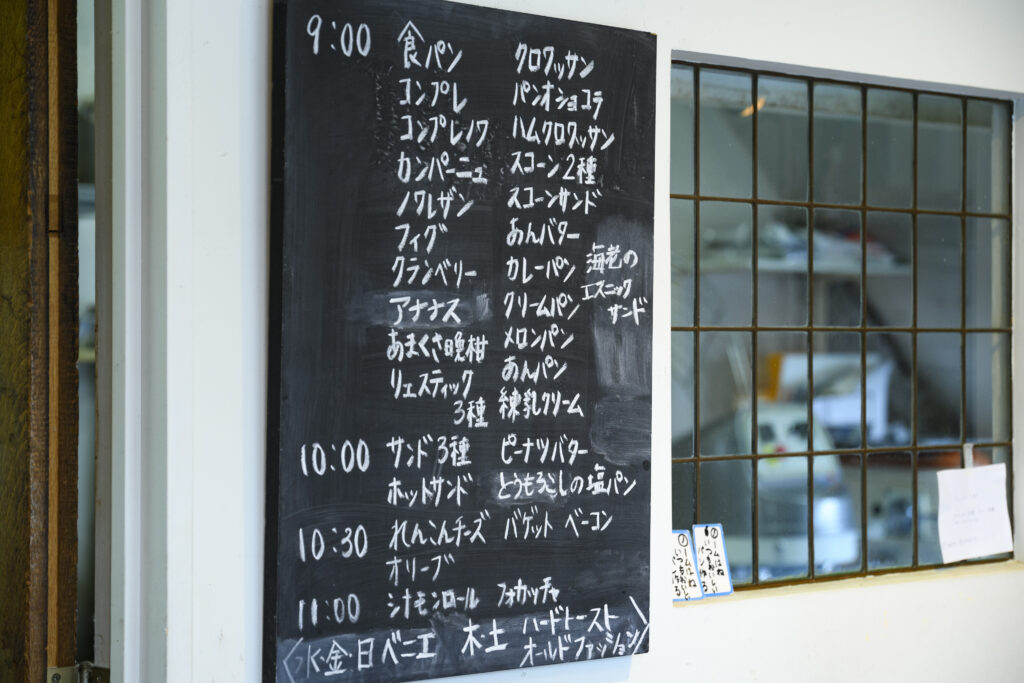 9:00 食パン クロワッサン
コンプレ パンオショコラ
コンプレノワ ハムクロワッサン
カンパーニュ スコーン2種
ノワレザン スコーンサンド
フィグ あんバター
クランベリー カレーパン 海老の
アナナス クリームパン エスニック
サンド
あまくさ晩柑 メロンパン
リュスティック あんパン
3種 練乳クリーム
10:00 サンド3種 ピーナツバター
ホットサンド とうもろこしの塩パン
10:30 れんこんチーズ バゲット ベーコン
オリーブ
11:00 シナモンロール フォカッチャ
水・金・日 ベニエ 木・土 ハードトースト
オールドファッション